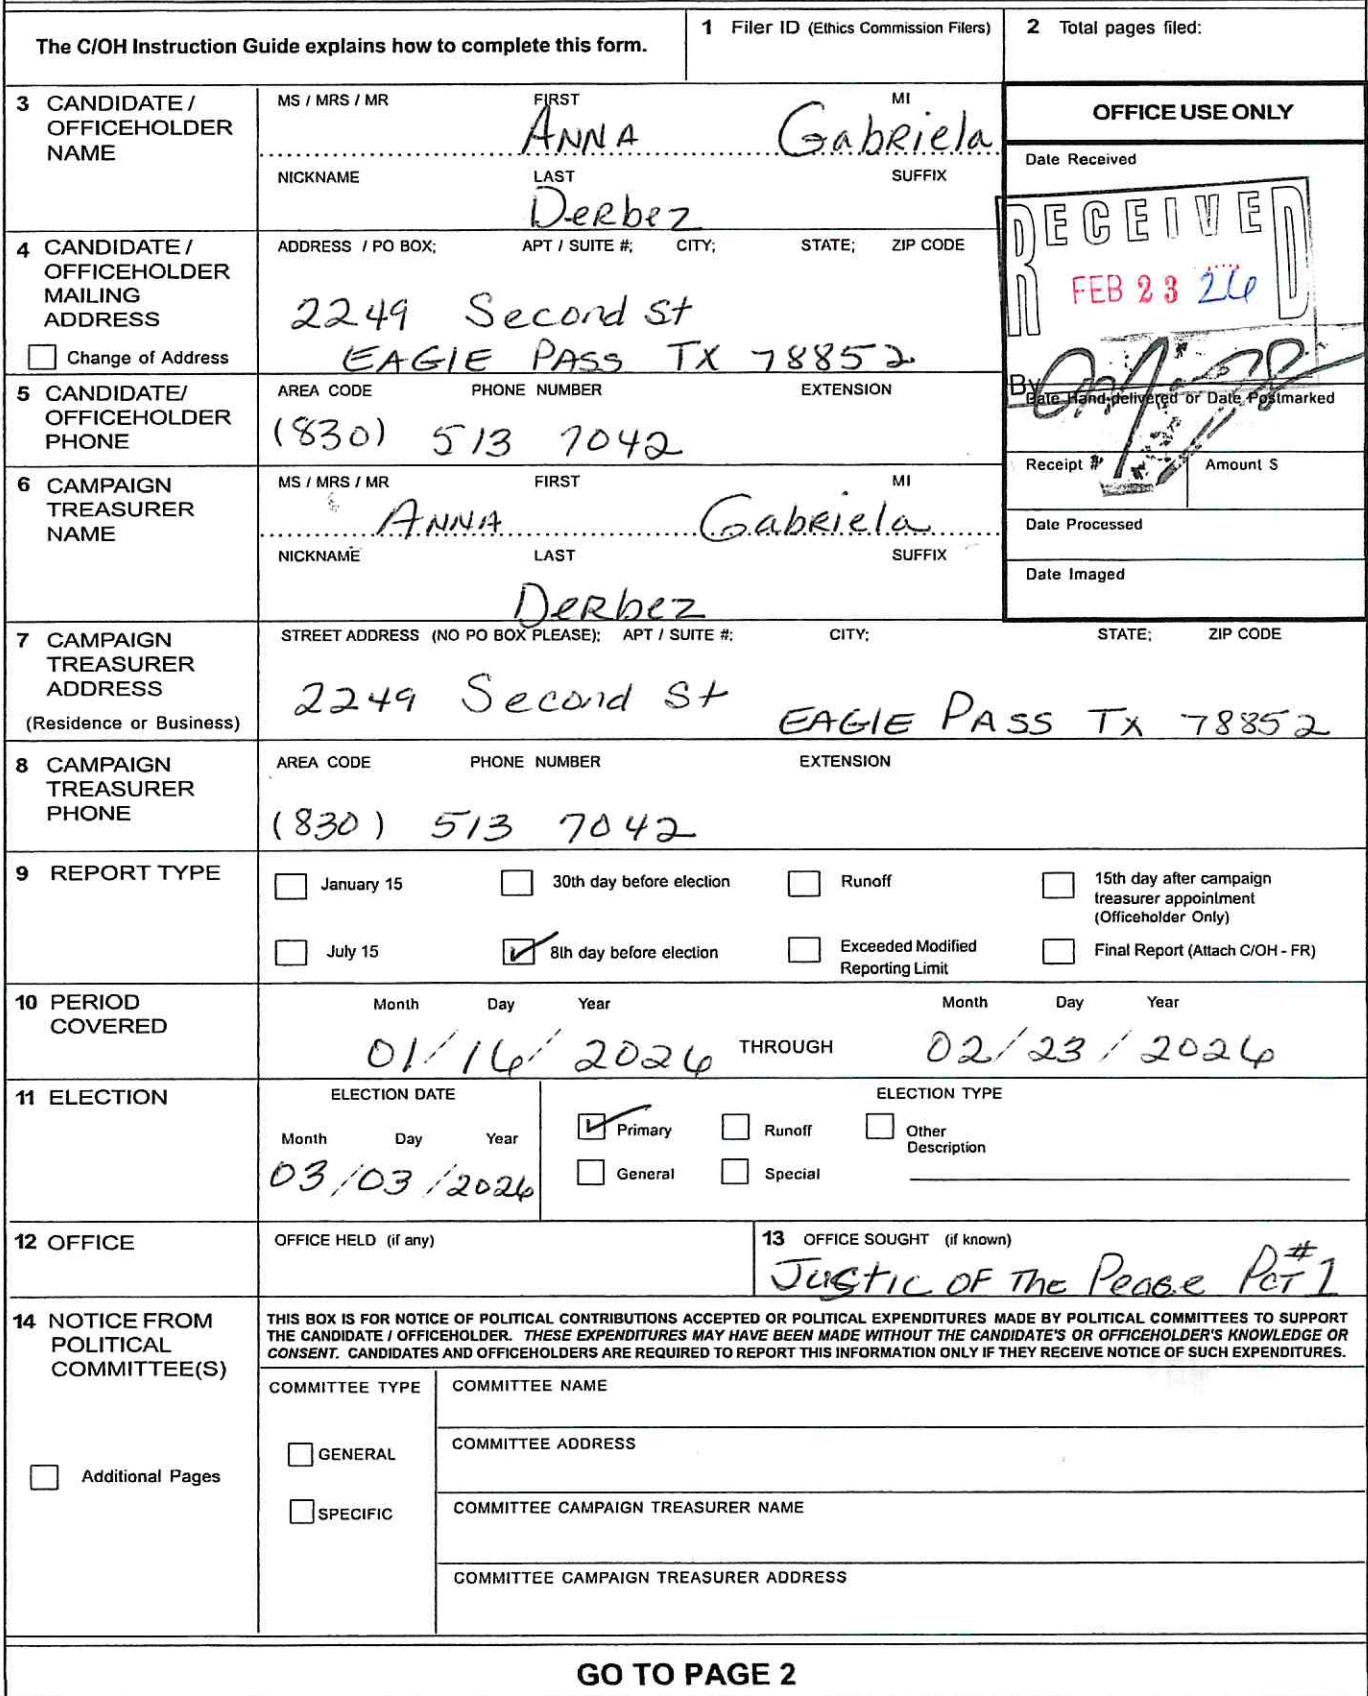 The C/OH Instruction Guide explains how to complete this form.
1 Filer ID (Ethics Commission Filers)
2 Total pages filed:
3 CANDIDATE / OFFICEHOLDER NAME
MS / MRS / MR FIRST MI
ANNA Gabriela
NICKNAME LAST SUFFIX
Derbez
OFFICE USE ONLY
Date Received
RECEIVED
FEB 23 26
By
Date Hand-delivered or Date Postmarked
Receipt # Amount $
Date Processed
Date Imaged
4 CANDIDATE / OFFICEHOLDER MAILING ADDRESS
Change of Address
ADDRESS / PO BOX; APT / SUITE #; CITY; STATE; ZIP CODE
2249 Second St
EAGlE PASS TX 78852
5 CANDIDATE/ OFFICEHOLDER PHONE
AREA CODE PHONE NUMBER EXTENSION
(830) 513 7042
6 CAMPAIGN TREASURER NAME
MS / MRS / MR FIRST MI
ANNA Gabriela
NICKNAME LAST SUFFIX
Derbez
7 CAMPAIGN TREASURER ADDRESS
(Residence or Business)
STREET ADDRESS (NO PO BOX PLEASE); APT / SUITE #; CITY; STATE; ZIP CODE
2249 Second St EAGlE PASS Tx 78852
8 CAMPAIGN TREASURER PHONE
AREA CODE PHONE NUMBER EXTENSION
(830) 513 7042
9 REPORT TYPE
January 15 30th day before election Runoff 15th day after campaign treasurer appointment (Officeholder Only)
July 15 8th day before election Exceeded Modified Reporting Limit Final Report (Attach C/OH - FR)
10 PERIOD COVERED
Month Day Year Month Day Year
01/16/2026 THROUGH 02/23/2026
11 ELECTION
ELECTION DATE
Month Day Year
03/03/2026
ELECTION TYPE
Primary Runoff Other Description
General Special
12 OFFICE
OFFICE HELD (if any)
13 OFFICE SOUGHT (if known)
Justic OF The Pease Pct #1
14 NOTICE FROM POLITICAL COMMITTEE(S)
Additional Pages
THIS BOX IS FOR NOTICE OF POLITICAL CONTRIBUTIONS ACCEPTED OR POLITICAL EXPENDITURES MADE BY POLITICAL COMMITTEES TO SUPPORT
THE CANDIDATE / OFFICEHOLDER. THESE EXPENDITURES MAY HAVE BEEN MADE WITHOUT THE CANDIDATE'S OR OFFICEHOLDER'S KNOWLEDGE OR
CONSENT. CANDIDATES AND OFFICEHOLDERS ARE REQUIRED TO REPORT THIS INFORMATION ONLY IF THEY RECEIVE NOTICE OF SUCH EXPENDITURES.
COMMITTEE TYPE
GENERAL
SPECIFIC
COMMITTEE NAME
COMMITTEE ADDRESS
COMMITTEE CAMPAIGN TREASURER NAME
COMMITTEE CAMPAIGN TREASURER ADDRESS
GO TO PAGE 2